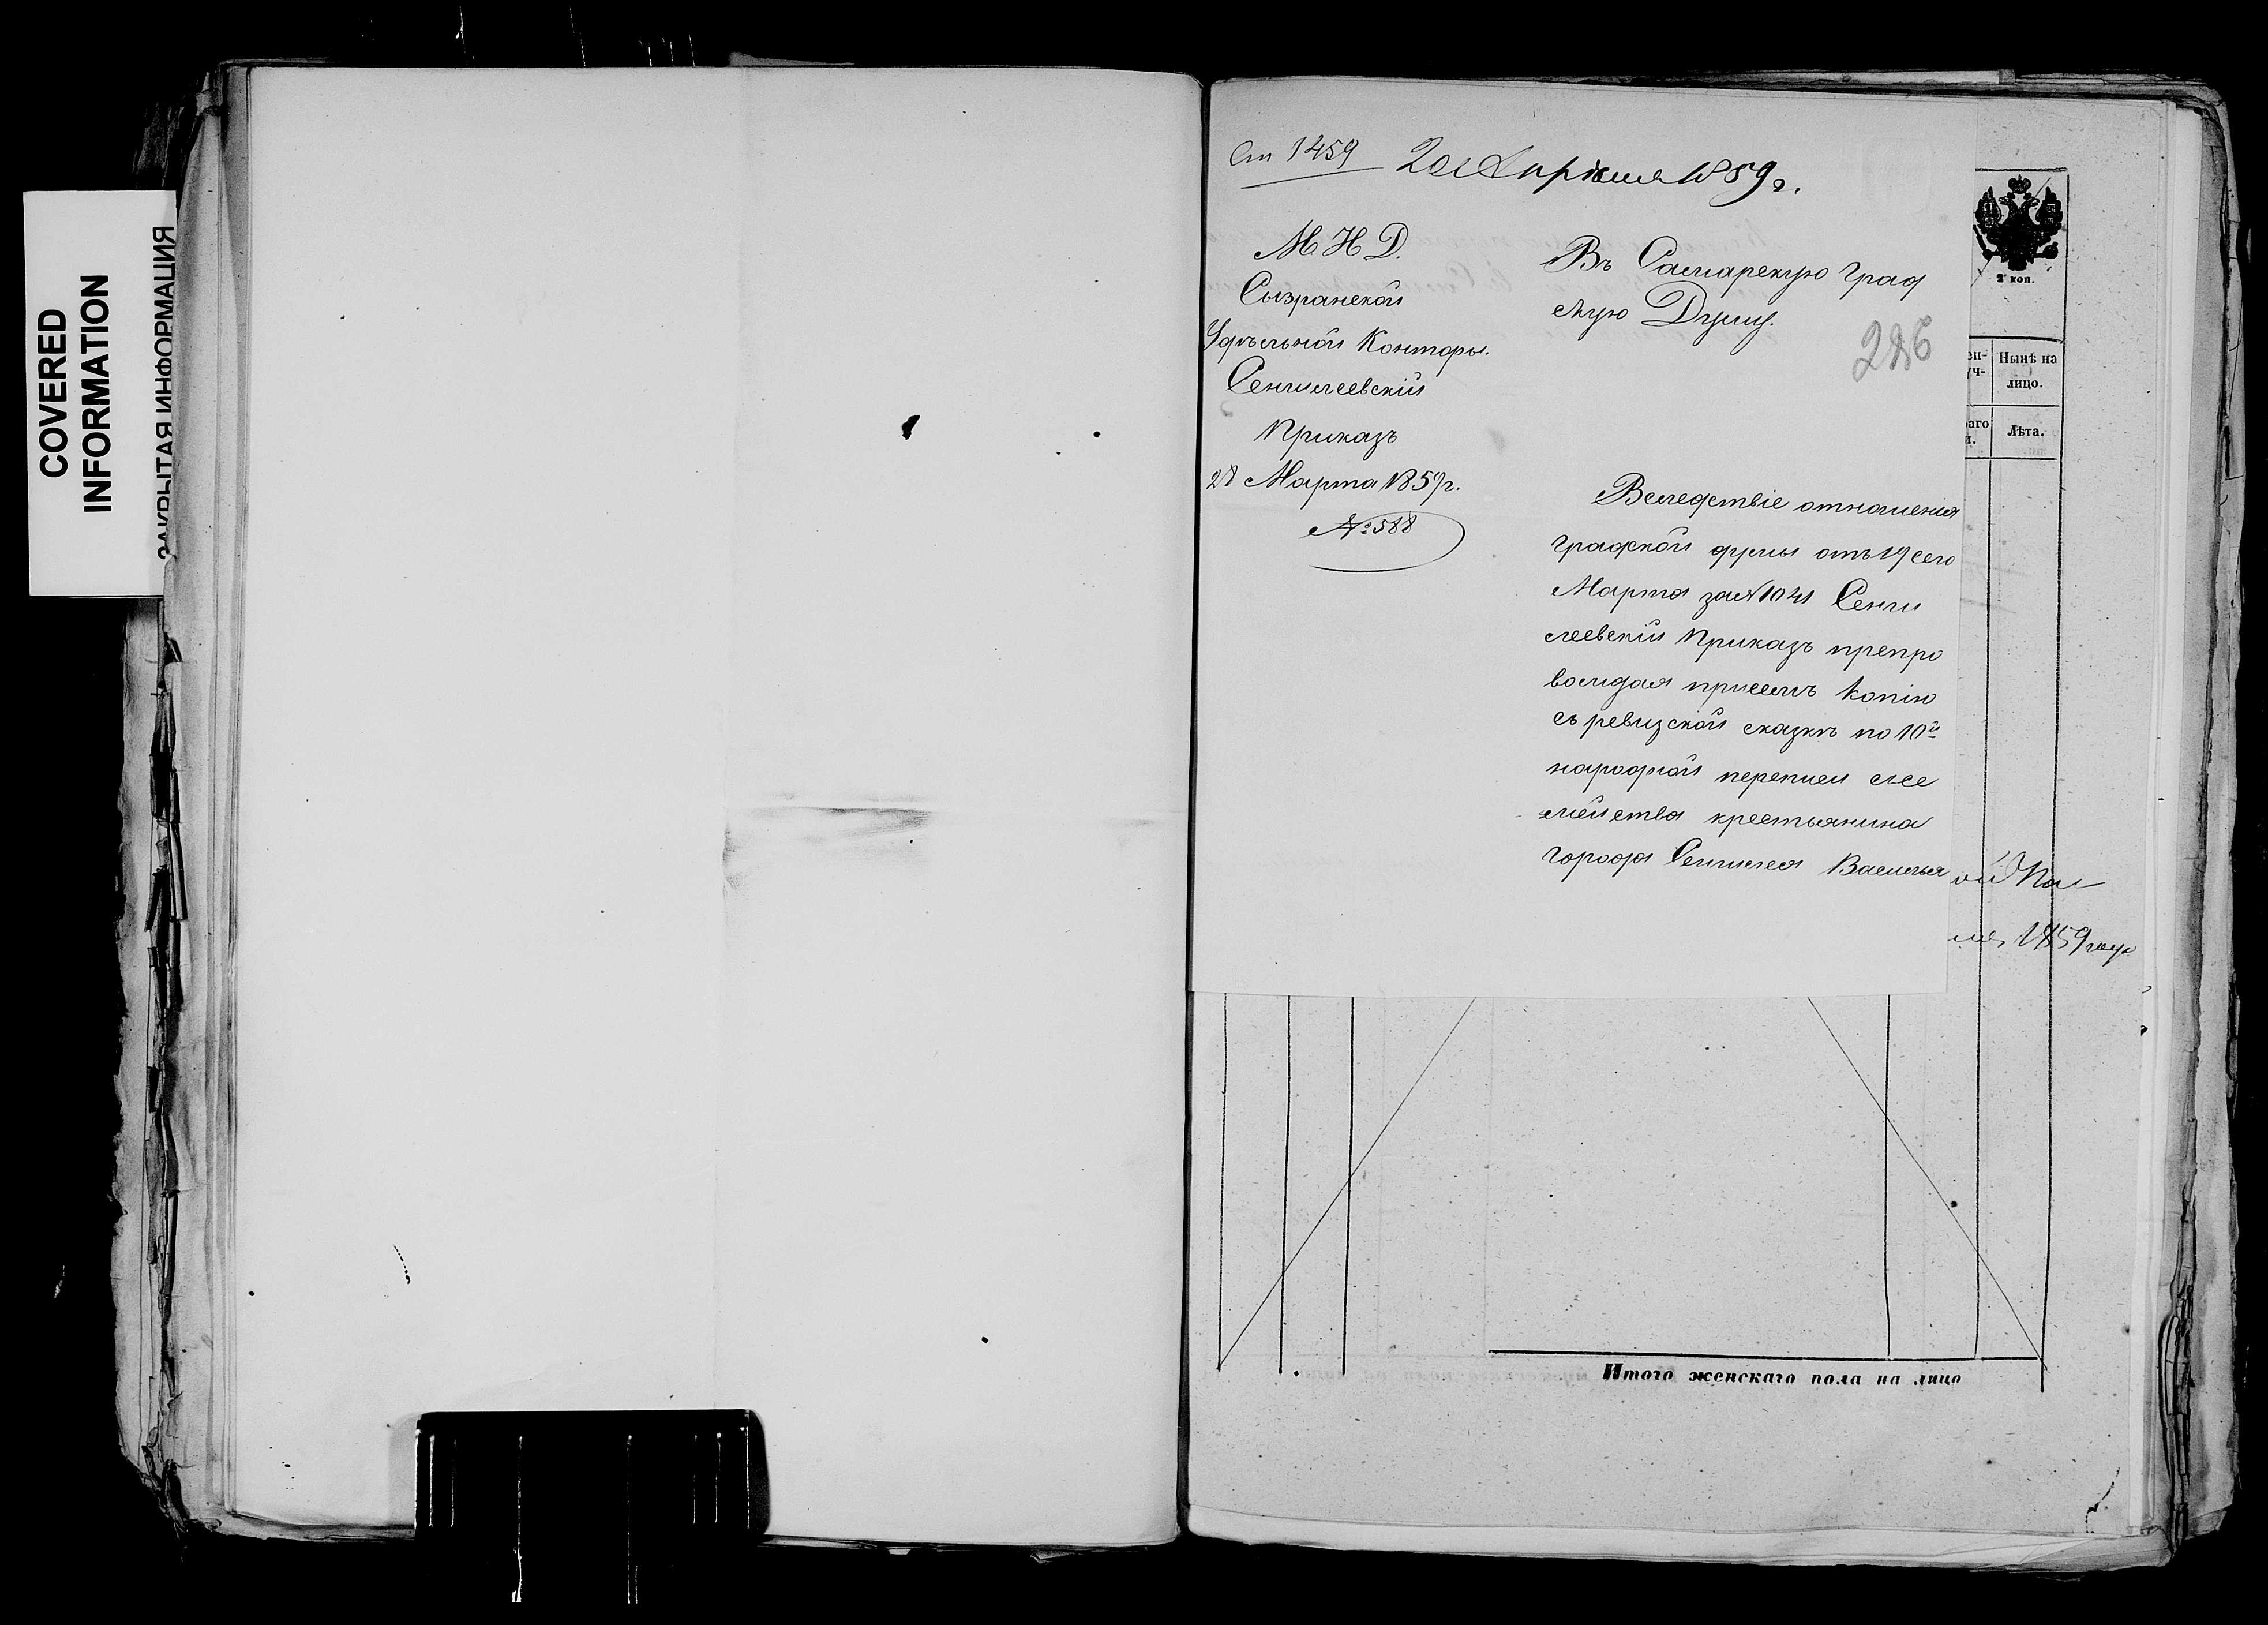 COVERED
INFORMATION
ЗАКРЫТАЯ ИНФОРМАЦИЯ
Ст 1459
20 Апрѣля 1859 г.
М. И. Д.
Сызранской
Удѣльной Конторы.
Сенгилеевскій
Приказъ
28 Марта 1859 г.
№ 588
Въ Самарскую Град
скую Думу.
226
Вследствіе отношенія
градской думы отъ 19 сего
Марта за № 1041 Сенги
леевскій Приказъ препро
вождая присемъ копію
съ ревизской сказкѣ по 10й
народной переписи се
мейства крестьянина
города Сенгилея Василья
2 коп.
ен-
уч-
Нынѣ на
лицо.
аго
и.
Лѣта.
ой Па
1859 году
Итого женскаго пола на лицо